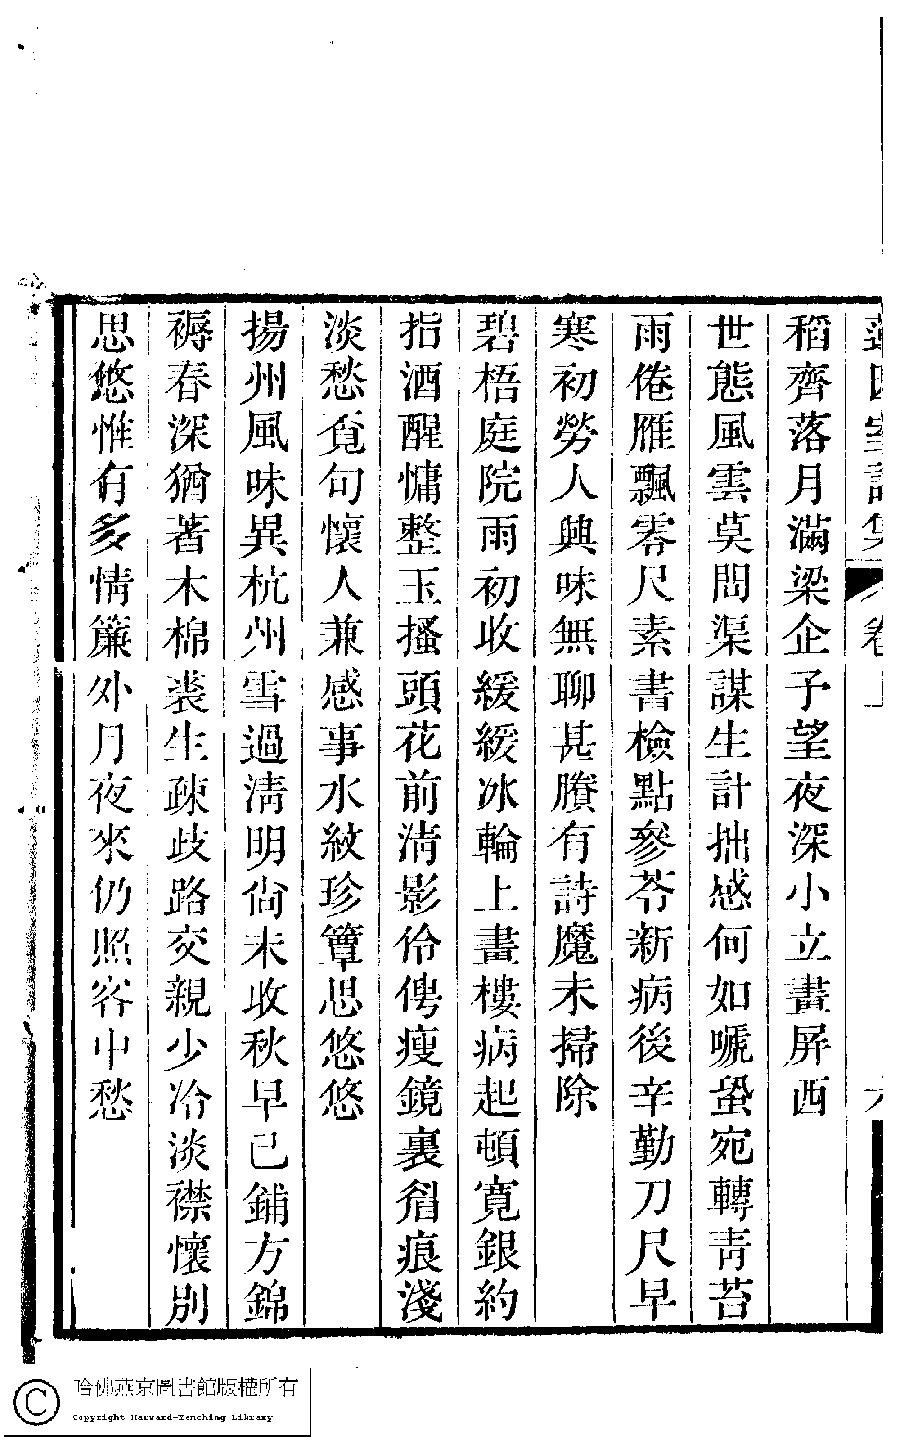 稻齊落月滿梁企予望夜深小立畫屏西
世態風雲莫問渠謀生計拙感何如嗁蛩宛轉靑苔
雨倦雁飄零尺素書檢點參苓新病後辛勤刀尺早
寒初勞人興味無聊甚賸有詩魔未掃除
碧梧庭院雨初收緩緩冰輪上畫樓病起頓寬銀約
指酒醒慵整玉搔頭花前淸影伶俜瘦鏡裏眉痕淺
淡愁覓句懷人兼感事水紋珍簟思悠悠
揚州風味異杭州雪過淸明尙未收秋早已鋪方錦
褥春深猶著木棉裘生疎歧路交親少冷淡襟懷別
思悠惟有多情簾外月夜來仍照客中愁
哈佛燕京圖書館版權所有
Copyright Harvard-Yenching Library